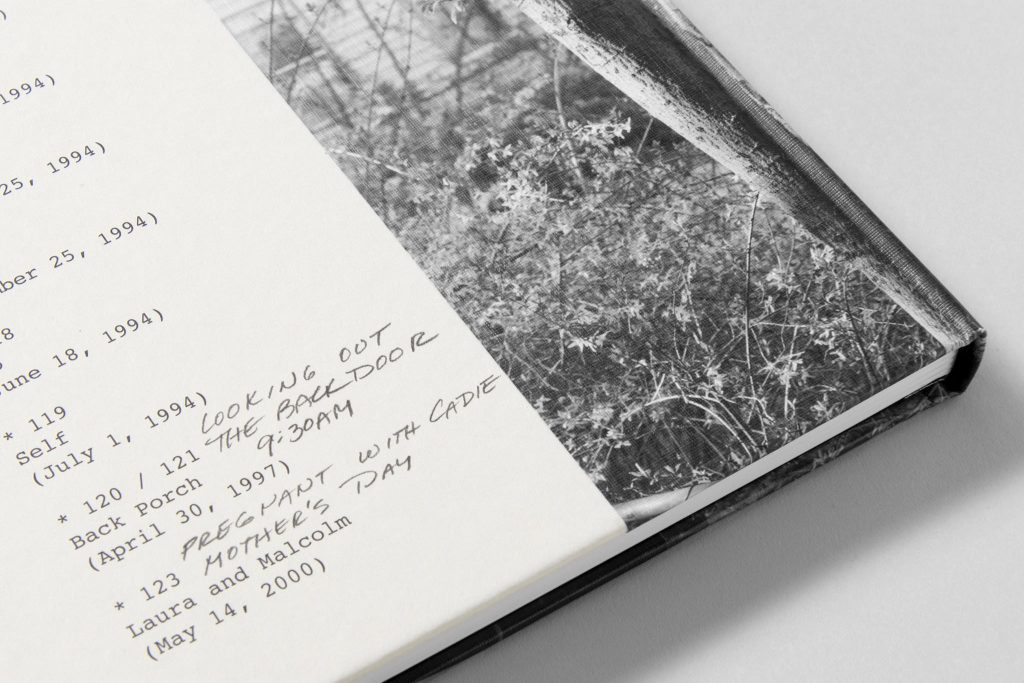 1994)
25, 1994)
ber 25, 1994)
8
une 18, 1994)
* 119
Self
(July 1, 1994)
* 120 / 121 LOOKING OUT
THE BACK DOOR
Back Porch 9:30AM
(April 30, 1997)
* 123 PREGNANT WITH CADIE
MOTHER'S DAY
Laura and Malcolm
(May 14, 2000)